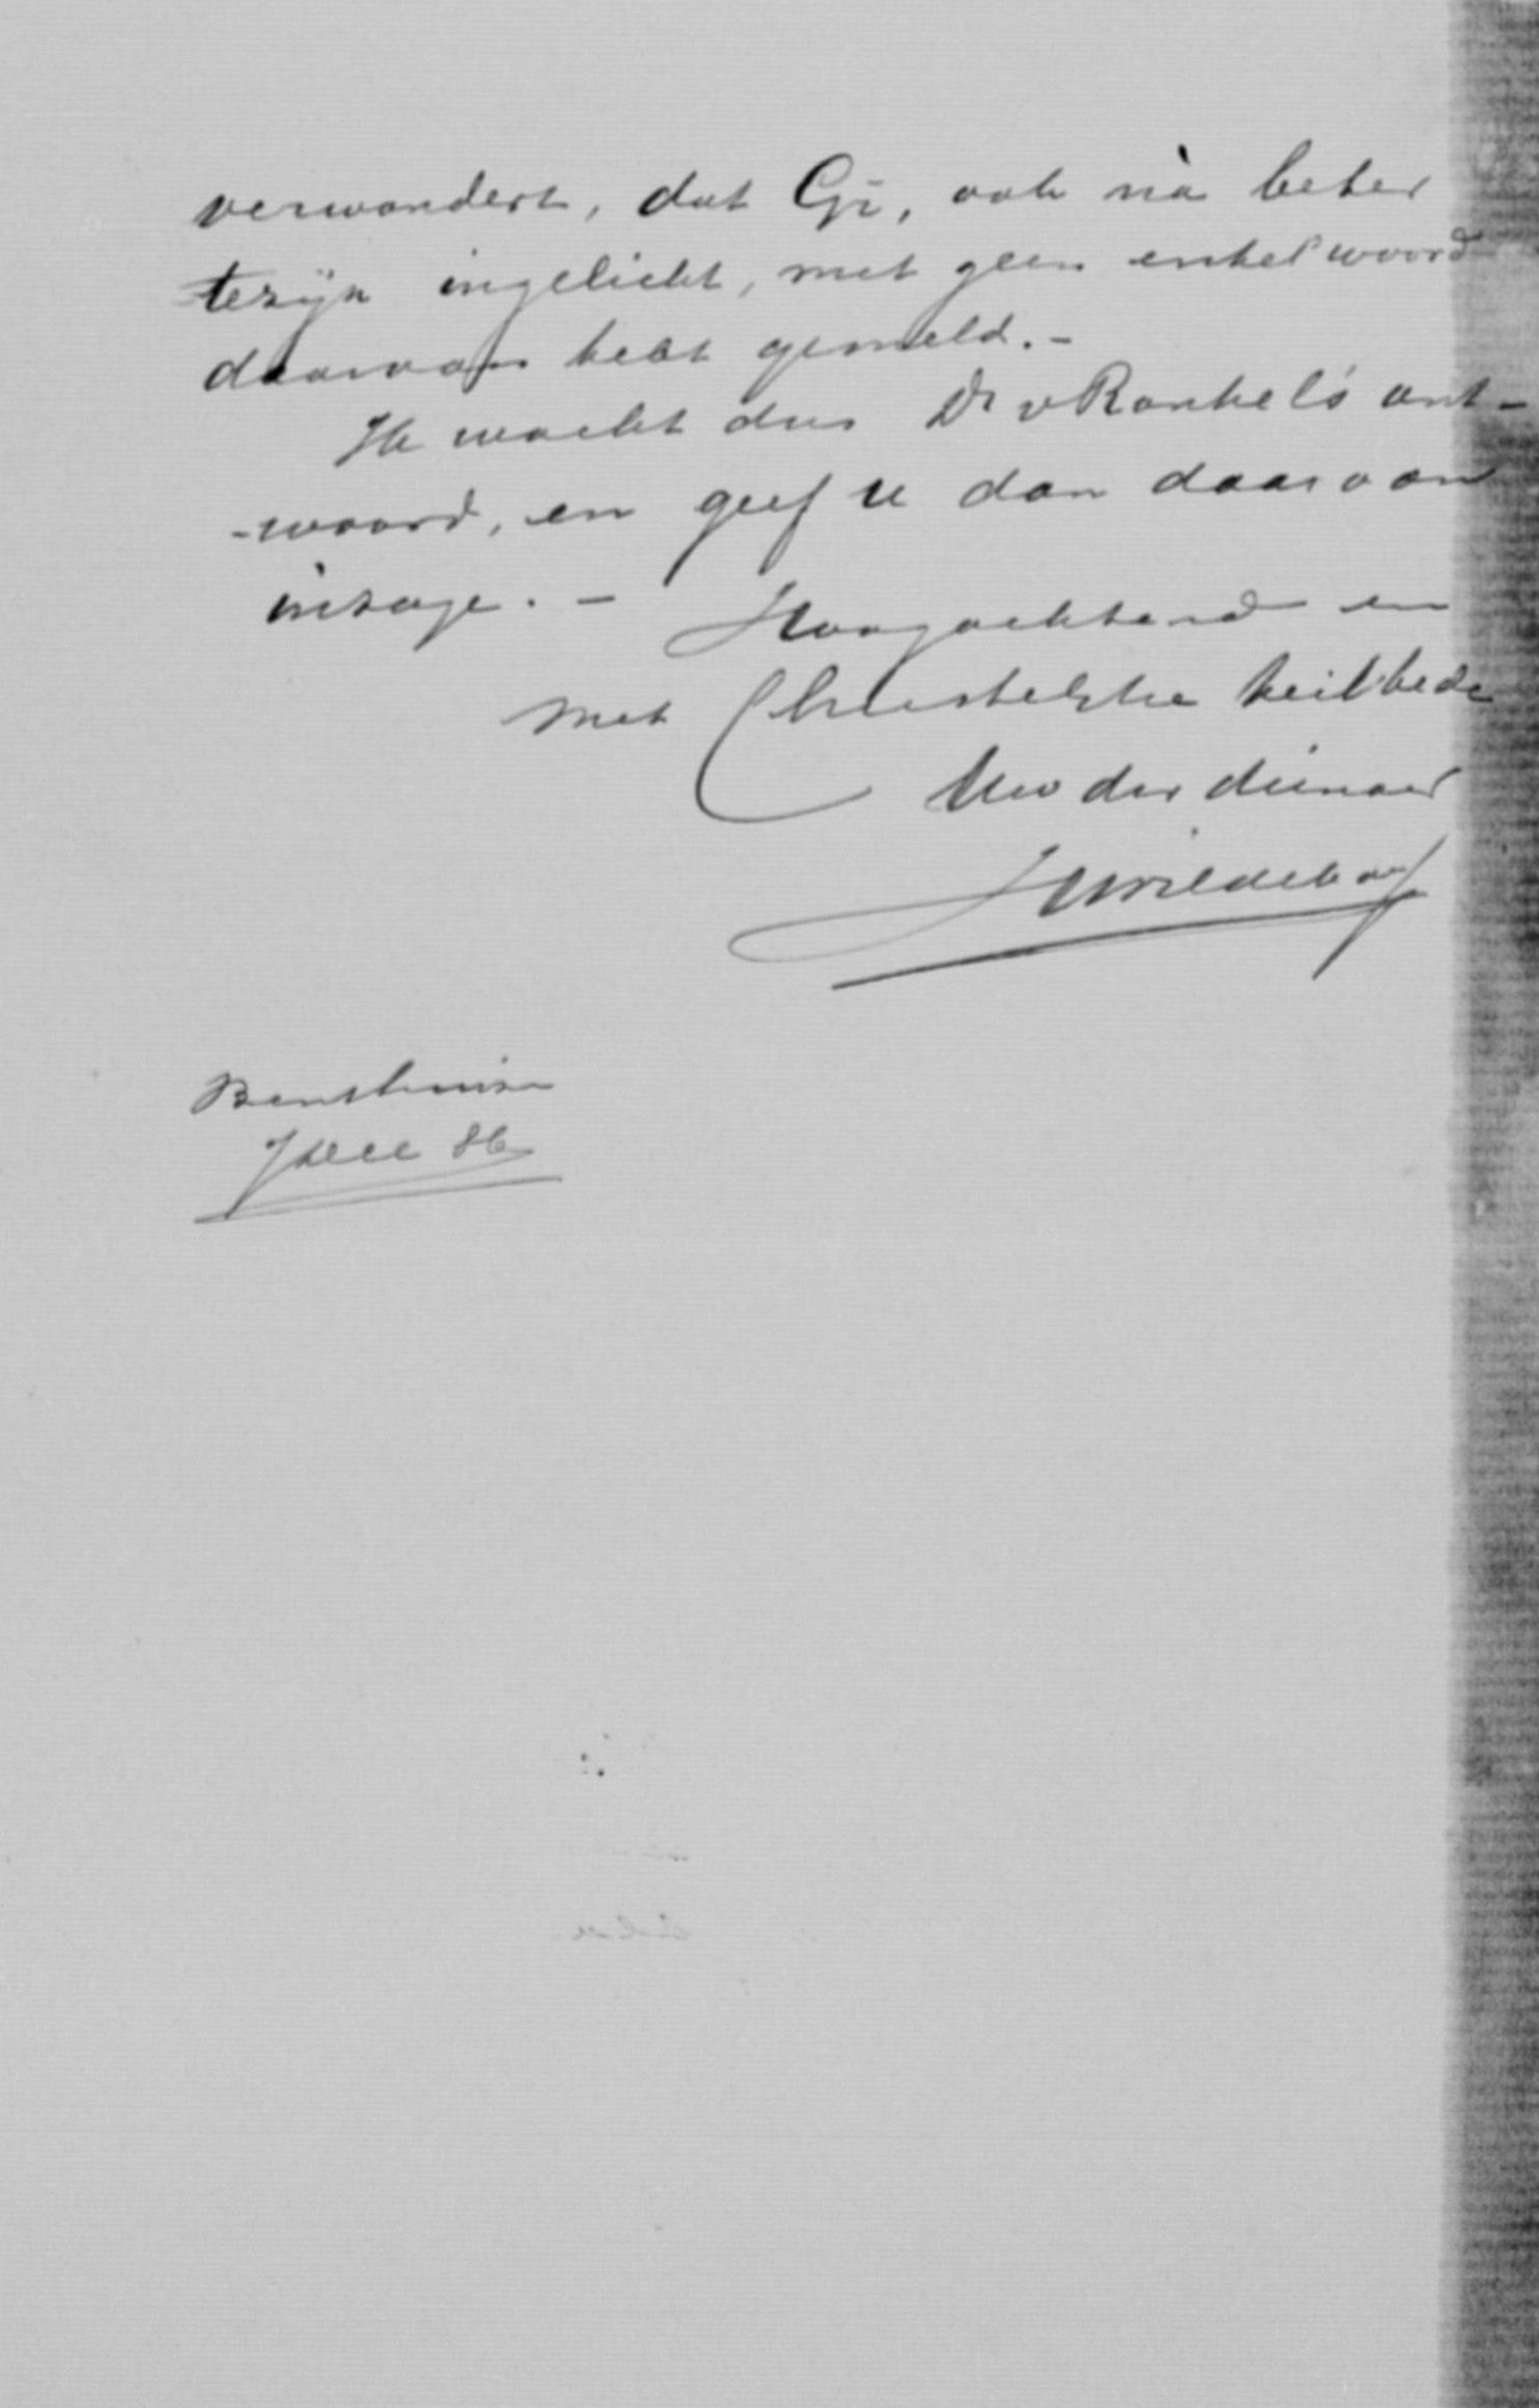 verwondert, dat Gij, ook nà beter
te zijn ingelicht, met geen enkel woord
daarvan hebt gemeld. -
Ik wacht dus Dr v Ronkel's ant-
-woord, en geef U dan daarvan
inzage. - Hoogachtend en
met Christelijke heilbede
Uw dw dienaar
Benthuizen
7 Dec 86